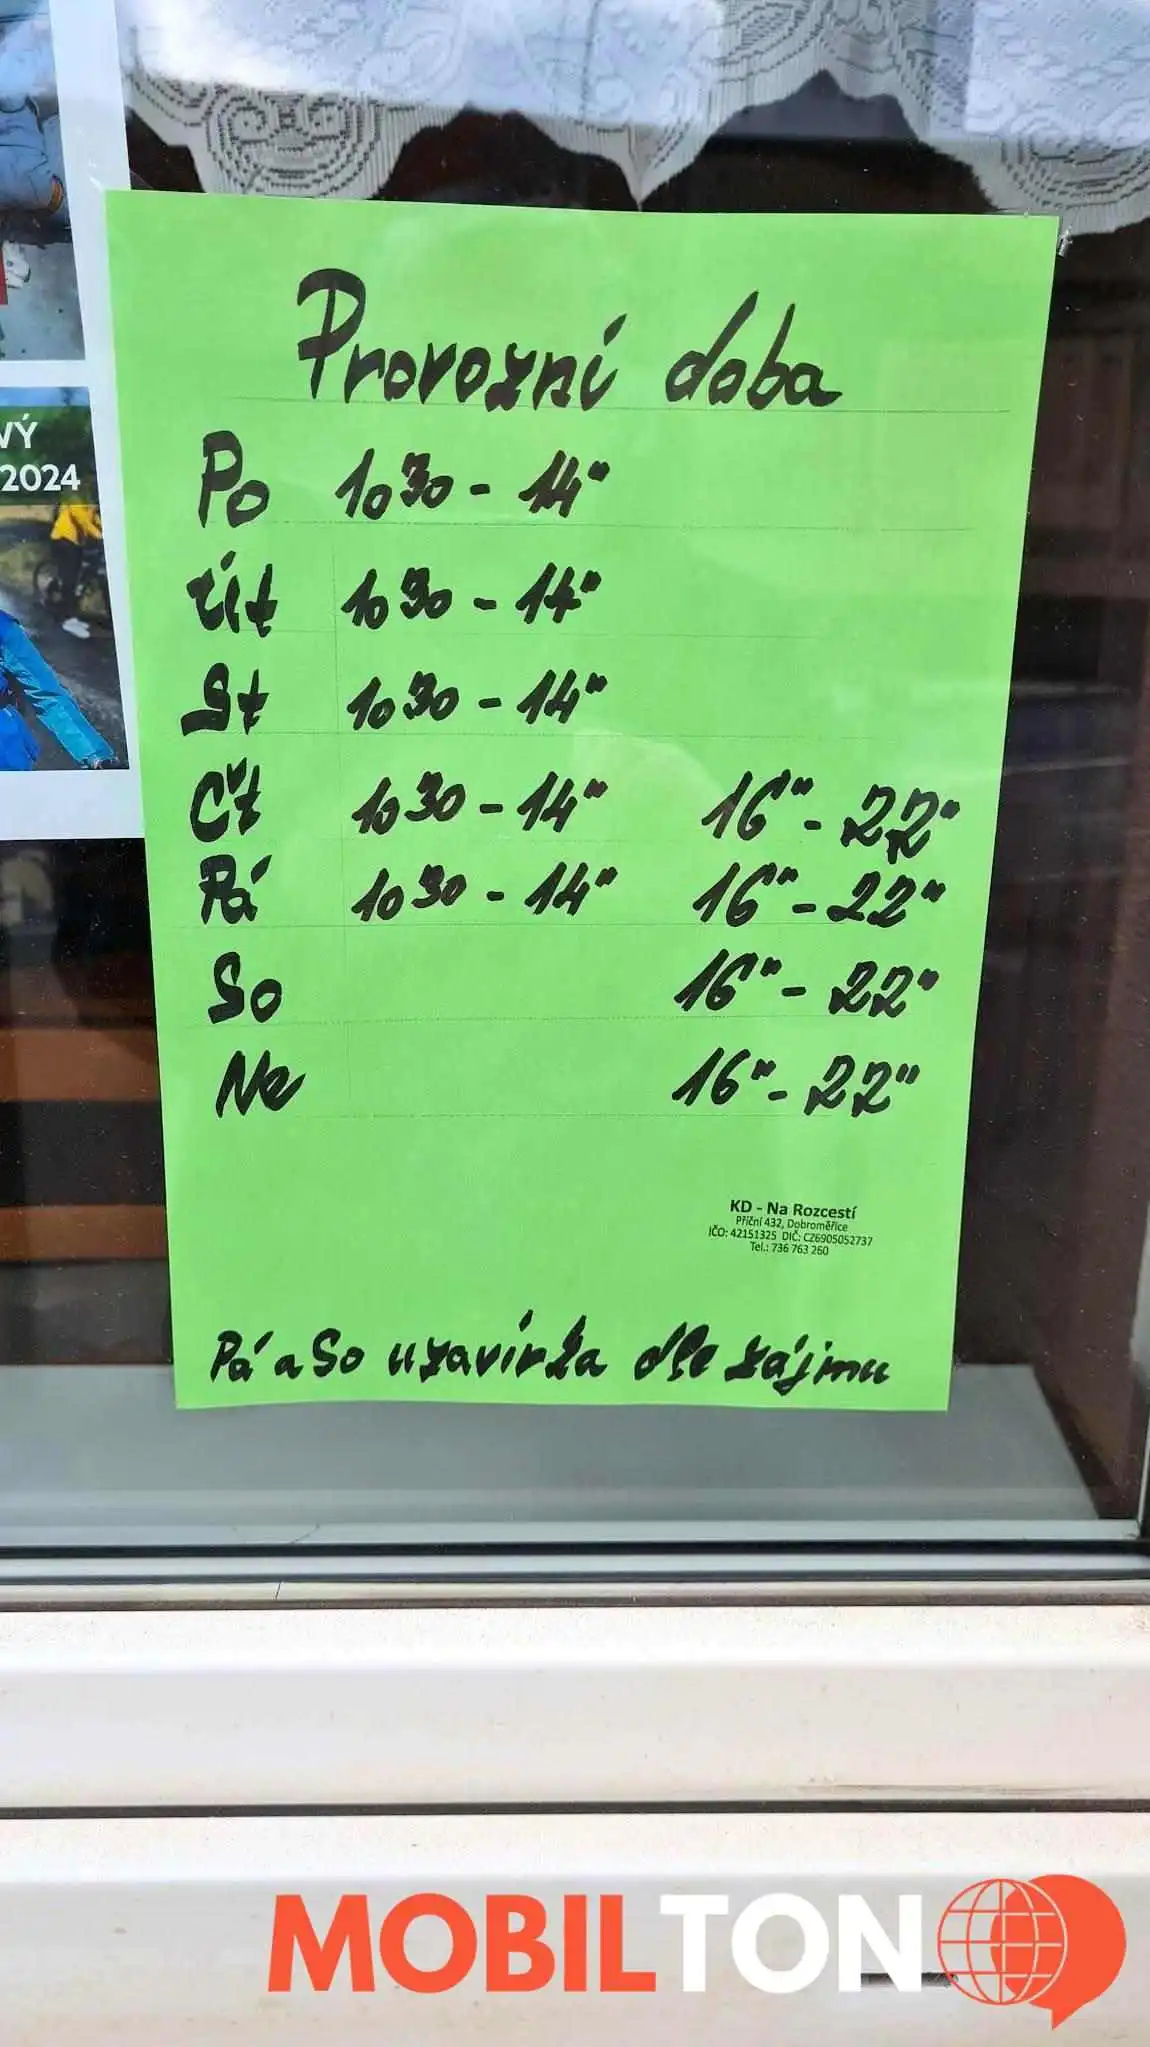 VÝ
2024
Provozní doba
Po 10³⁰ - 14"
Út 10³⁰ - 14"
St 10³⁰ - 14"
Čt 10³⁰ - 14" 16" - 22"
Pá 10³⁰ - 14" 16" - 22"
So 16" - 22"
Ne 16" - 22"
KD - Na Rozcestí
Příční 432, Dobroměřice
IČO: 42151325 DIČ: CZ6905052737
Tel.: 736 763 260
Pá a So uzavírka dle zájmu
MOBILTON